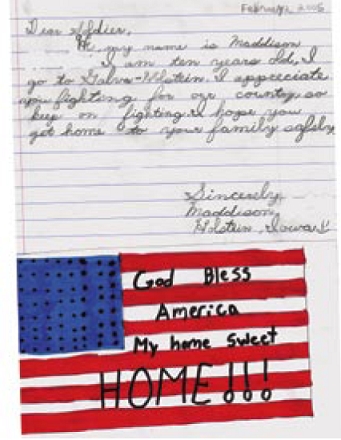 February 2, 2005
Dear Soldier,
Hi, my name is Maddison
I am ten years old, I
go to Galva-Holstein. I appreciate
you fighting for our country so
keep on fighting. I hope you
get home to your family safely.
Sincerely
Maddison
Holstein, Iowa
God Bless
America
My home sweet
HOME!!!